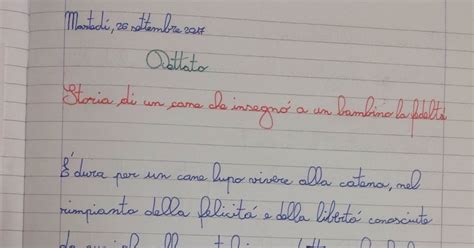 Martedì, 26 settembre 2017
Dettato
Storia di un cane che insegnó a un bambino la fedeltá
É dura per un cane lupo vivere alla catena, nel
rimpianto della felicitá e della libertá conosciute